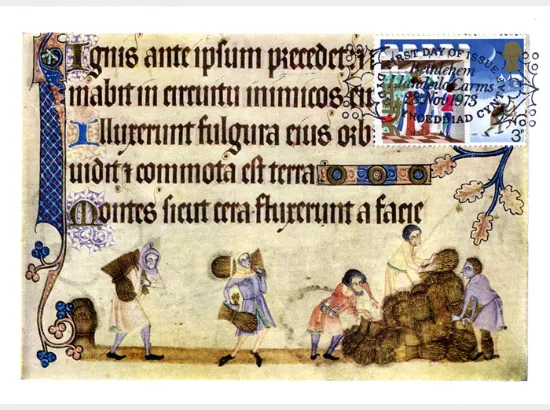 Ignis ante ipsum precedet: i
mabit in circuitu inimicos ei
Illuxerunt fulgura eius orb
uidit i commota est terra
Montes sicut cera fluxerunt a facie
FIRST DAY OF ISSUE
Bethlehem
Llandeilo Carms
28 Nov 1973
DYDDIAD CYN
3P